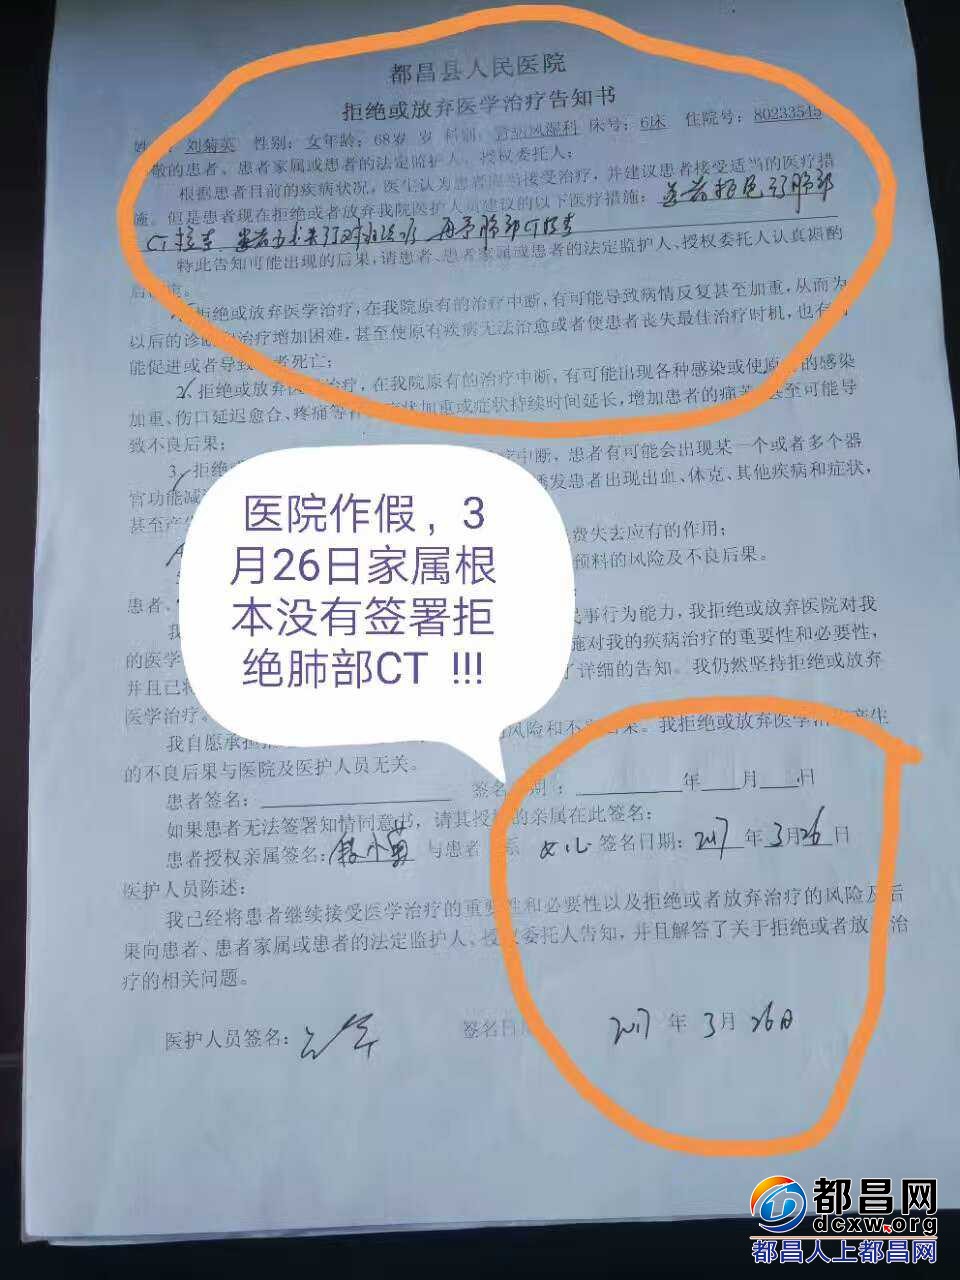 都昌县人民医院
拒绝或放弃医学治疗告知书
姓 刘菊英 性别：女年龄：68岁 岁 科别：肾病风湿科 床号：6床 住院号：80233545
敬的患者、患者家属或患者的法定监护人、授权委托人：
根据患者目前的疾病状况，医生认为患者应当接受治疗，并建议患者接受适当的医疗措
施。但是患者现在拒绝或者放弃我院医护人员建议的以下医疗措施：患者拒绝行肺部
CT检查 再予肺部CT检查
特此告知可能出现的后果，请患者、患者家属或患者的法定监护人、授权委托人认真斟酌
后
拒绝或放弃医学治疗，在我院原有的治疗中断，有可能导致病情反复甚至加重，从而为
以后的诊 治疗增加困难，甚至使原有疾病无法治愈或者使患者丧失最佳治疗时机，也有
能促进或者导致 者死亡；
2、拒绝或放弃医 治疗，在我院原有的治疗中断，有可能出现各种感染或使原 的感染
加重、伤口延迟愈合、疼痛等 状加重或症状持续时间延长，增加患者的痛苦 甚至可能导
致不良后果；
3、拒绝 中断，患者有可能会出现某一个或者多个器
官功能减 诱发患者出现出血、休克、其他疾病和症状，
甚至产
费失去应有的作用；
预料的风险及不良后果。
患者、
我 民事行为能力，我拒绝或放弃医院对我
的医学 施对我的疾病治疗的重要性和必要性，
并且已将 了详细的告知。我仍然坚持拒绝或放弃
医学治疗。
我自愿承担 风险和不良后果。我拒绝或放弃医学治疗产生
的不良后果与医院及医护人员无关。
患者签名： 签名日期： 年 月 日
如果患者无法签署知情同意书，请其授权的亲属在此签名：
患者授权亲属签名： 与患者 系 女儿 签名日期：2017年3月26日
医护人员陈述：
我已经将患者继续接受医学治疗的重要性和必要性以及拒绝或者放弃治疗的风险及后
果向患者、患者家属或患者的法定监护人、授权委托人告知，并且解答了关于拒绝或者放 治
疗的相关问题。
医护人员签名： 签名日 2017年3月26日
医院作假，3
月26日家属根
本没有签署拒
绝肺部CT !!!
都昌网
dcxw.org
都昌人上都昌网